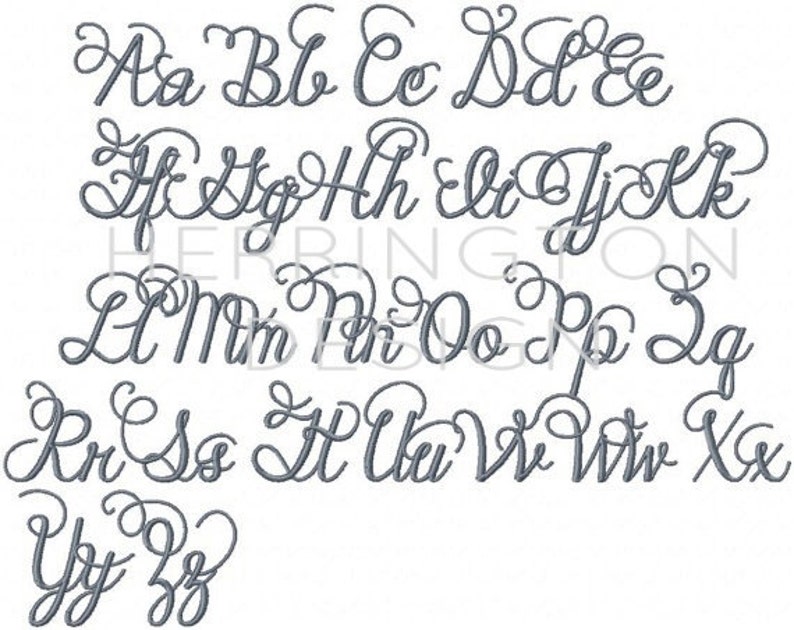 Aa Bb Cc Dd Ee
Ff Gg Hh Ii Jj Kk
HERRINGTON
Ll Mm Nn Oo Pp Qq
DESIGN
Rr Ss Tt Uu Vv Ww Xx
Yy Zz